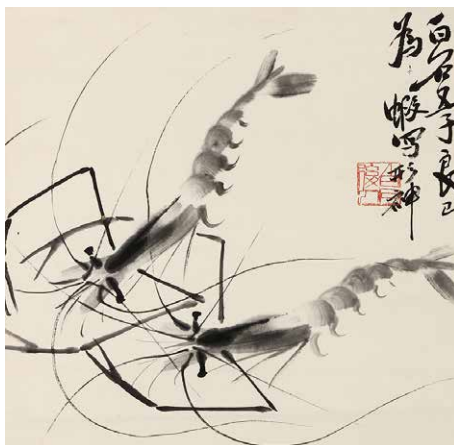 白石五子良已
為蝦写形神